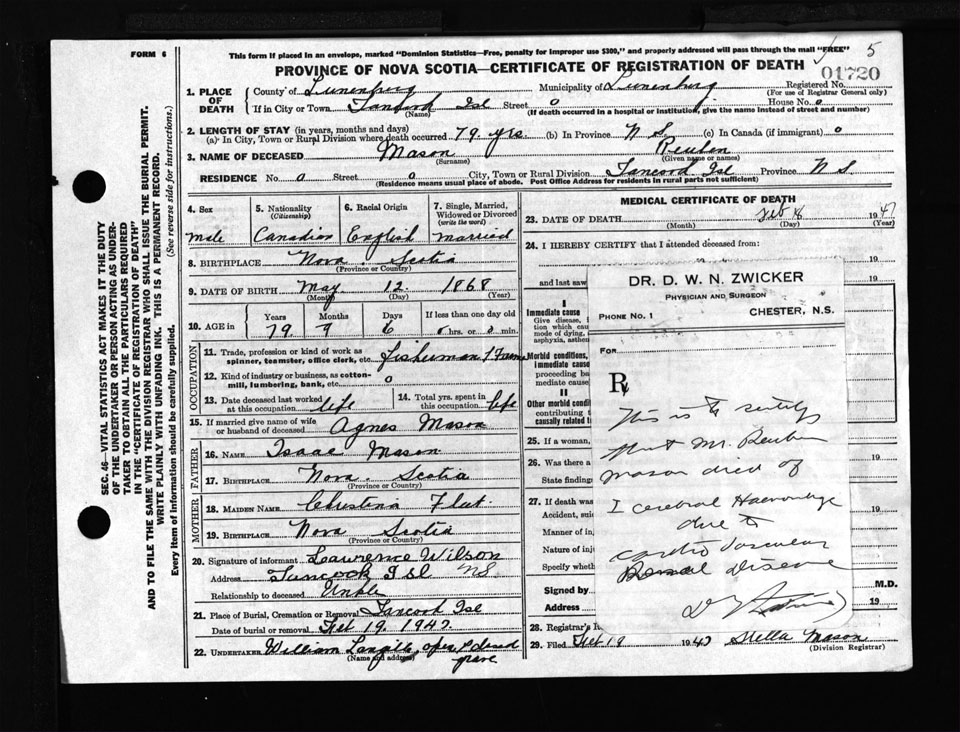 FORM 6
This form if placed in an envelope, marked "Dominion Statistics—Free, penalty for improper use $300," and properly addressed will pass through the mail "FREE"
5
PROVINCE OF NOVA SCOTIA—CERTIFICATE OF REGISTRATION OF DEATH
01720
1. PLACE OF DEATH
County of Lunenburg Municipality of Lunenburg Registered No.
(For use of Registrar General only)
If in City or Town Tancook Isl Street 0 House No. 0
(Name) (If death occurred in a hospital or institution, give the name instead of street and number)
2. LENGTH OF STAY (in years, months and days)
(a) In City, Town or Rural Division where death occurred 79 yrs. (b) In Province N S. (c) In Canada (if immigrant) 0
3. NAME OF DECEASED Mason Reuben
(Surname) (Given name or names)
RESIDENCE No. 0 Street 0 City, Town or Rural Division Tancook Isl Province N S.
(Residence means usual place of abode. Post Office Address for residents in rural parts not sufficient)
4. Sex 5. Nationality (Citizenship) 6. Racial Origin 7. Single, Married, Widowed or Divorced (write the word)
Male Canadian English Married
8. BIRTHPLACE Nova Scotia
(Province or Country)
9. DATE OF BIRTH May 12 1868
(Month) (Day) (Year)
10. AGE in Years Months Days If less than one day old
79 9 6 0 hrs. or 0 min.
OCCUPATION
11. Trade, profession or kind of work as spinner, teamster, office clerk, etc. Fisherman
12. Kind of industry or business, as cotton-mill, lumbering, bank, etc. 0
13. Date deceased last worked at this occupation life 14. Total yrs. spent in this occupation life
15. If married give name of wife or husband of deceased Agnes Mason
FATHER
16. NAME Isaac Mason
17. BIRTHPLACE Nova Scotia
(Province or Country)
MOTHER
18. MAIDEN NAME Christina
19. BIRTHPLACE Nova Scotia
(Province or Country)
20. Signature of informant Lawrence Wilson
Address Tancook Isl NS
Relationship to deceased Unkle
21. Place of Burial, Cremation or Removal Tancook Isl
Date of burial or removal Feb 19. 1947.
22. UNDERTAKER William Langille
(Name and address) grave
MEDICAL CERTIFICATE OF DEATH
23. DATE OF DEATH Feb 1947
(Month) (Day) (Year)
24. I HEREBY CERTIFY that I attended deceased from:
19
and last saw 19
I
Immediate cause
Give disease,
tion which cau
mode of dying,
asphyxia, asthen
Morbid conditions,
immediate cause
proceeding ba
mediate cause
II
Other morbid condi
contributing t
causally related t
25. If a woman,
26. Was there a
State findings
27. If death was
Accident, suic
Manner of in
Nature of inj
Specify wheth
Signed by M.D.
Address 19
28. Registrar's R
29. Filed Feb 19 1947 Stella Mason
(Division Registrar)
DR. D. W. N. ZWICKER
PHYSICIAN AND SURGEON
PHONE No. 1 CHESTER, N.S.
FOR
℞
This is to certify
that Mr. Reuben
Mason died of
I cerebral Haemorrhage
due to
cardio vascular
Renal Disease
SEC. 46—VITAL STATISTICS ACT MAKES IT THE DUTY
OF THE UNDERTAKER OR PERSON ACTING AS UNDER-
TAKER TO OBTAIN ALL THE PARTICULARS REQUIRED
IN THE "CERTIFICATE OF REGISTRATION OF DEATH"
AND TO FILE THE SAME WITH THE DIVISION REGISTRAR WHO SHALL ISSUE THE BURIAL PERMIT.
WRITE PLAINLY WITH UNFADING INK. THIS IS A PERMANENT RECORD.
Every item of information should be carefully supplied. (See reverse side for instructions.)